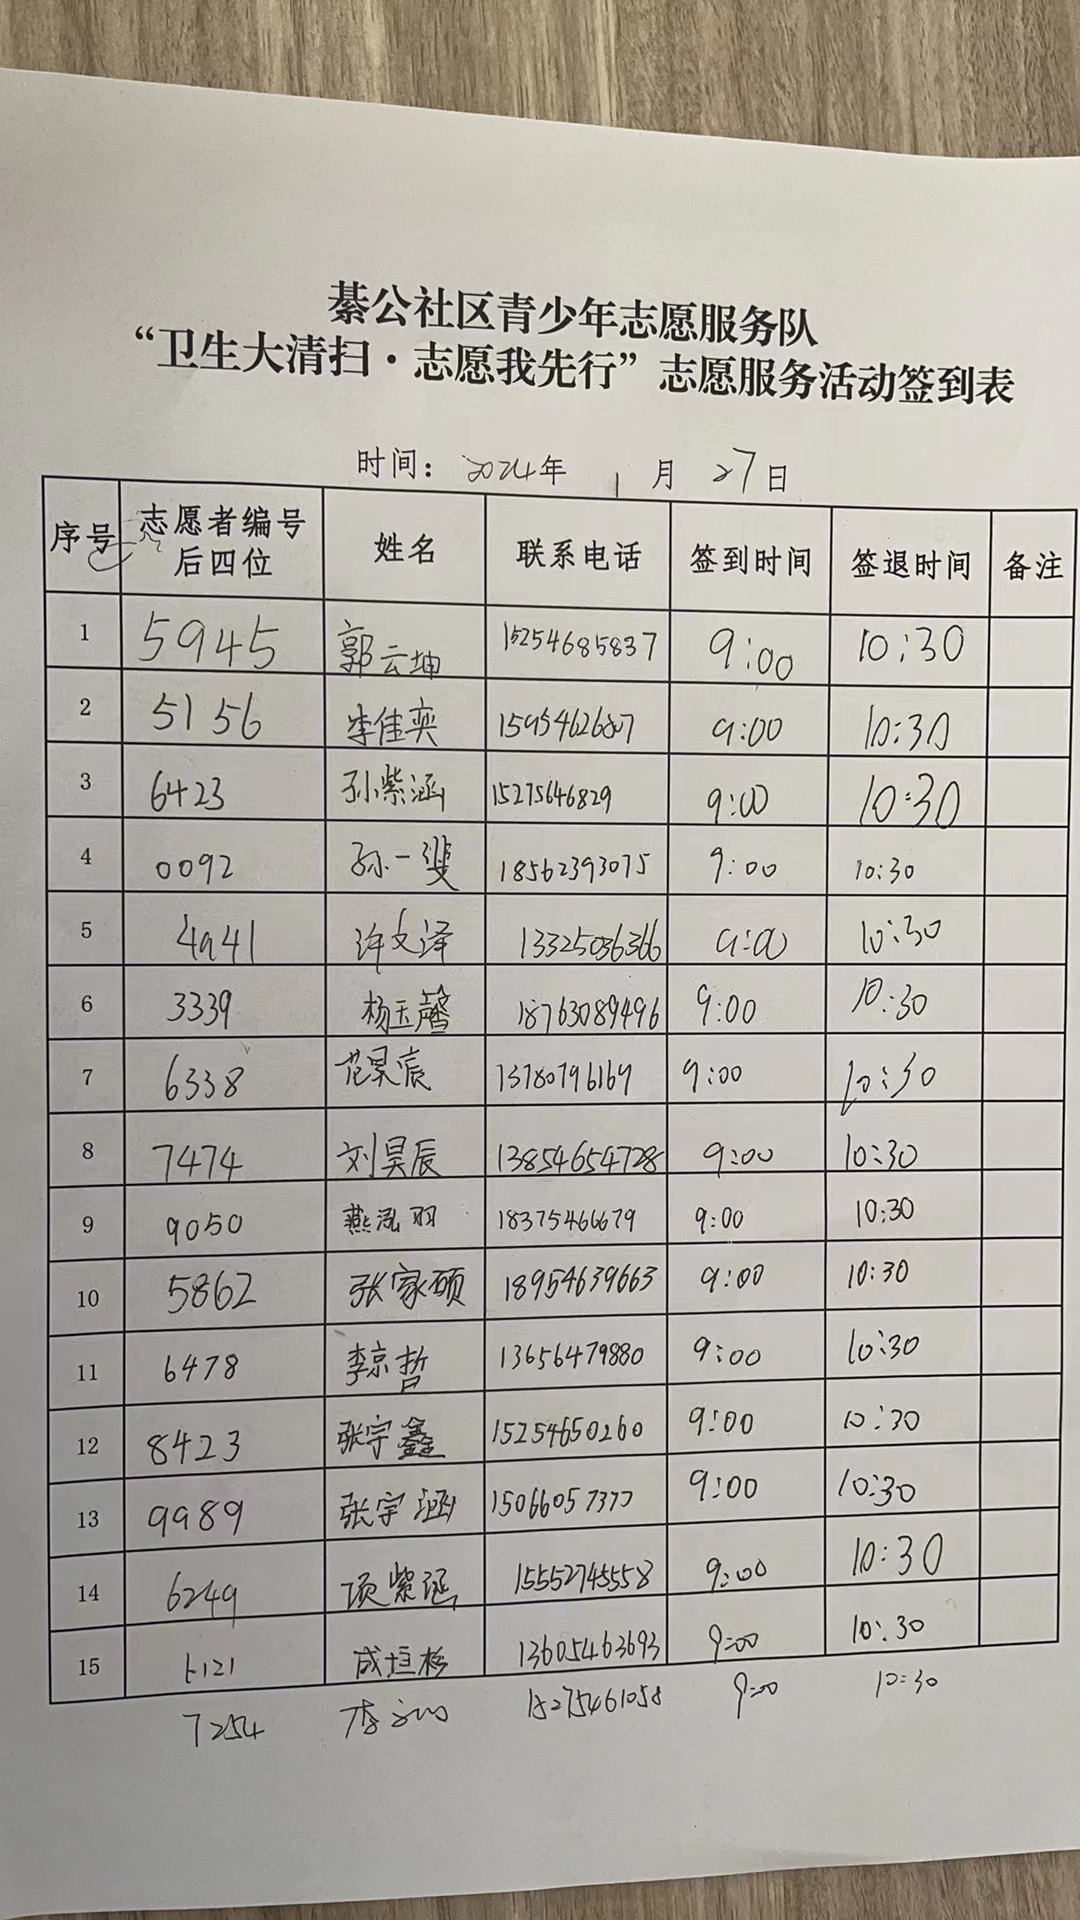 綦公社区青少年志愿服务队
“卫生大清扫·志愿我先行”志愿服务活动签到表
时间：2024年 1月 27日
序号 志愿者编号后四位 姓名 联系电话 签到时间 签退时间 备注
1 5945 郭云坤 15254685837 9:00 10:30
2 5156 李佳奕 9:00 10:30
3 6423 孙紫涵 15275646829 9:00 10:30
4 0092 孙一斐 18562393075 9:00 10:30
5 4941 许文泽 13325036366 9:00 10:30
6 3339 杨玉馨 18763089496 9:00 10:30
7 6338 范昊宸 13780796169 9:00 10:30
8 7474 刘昊辰 13854654728 9:00 10:30
9 9050 燕泓羽 18375466679 9:00 10:30
10 5862 张家硕 18954639663 9:00 10:30
11 6478 李京哲 13656479880 9:00 10:30
12 8423 张宇鑫 15254650260 9:00 10:30
13 9989 张宇涵 15066057377 9:00 10:30
14 6249 项紫涵 15552745558 9:00 10:30
15 成垣杉 13605463693 9:00 10:30
7254 李 15275461058 9:00 10:30